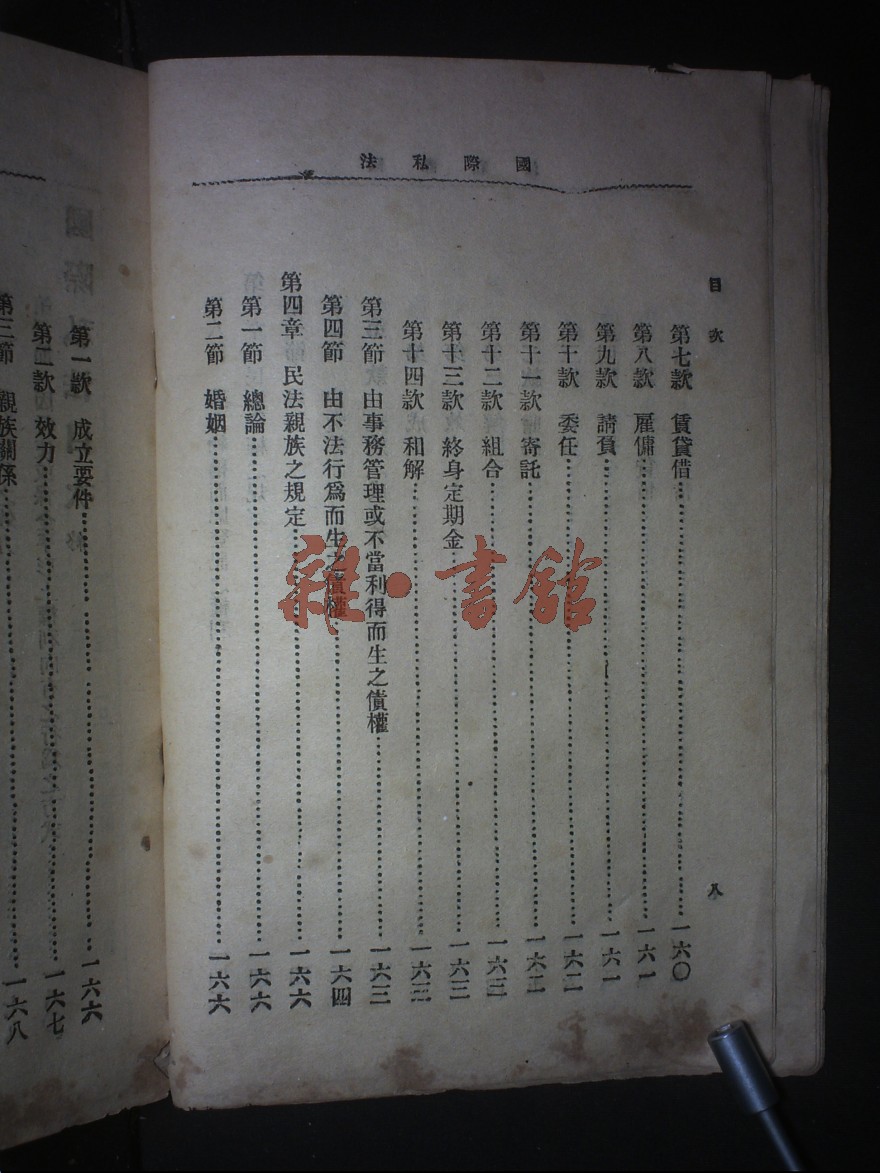 國際私法
目次
八
第七款 賃貸借 一六〇
第八款 雇傭 一六一
第九款 請負 一六一
第十款 委任 一六二
第十一款 寄託 一六二
第十二款 組合 一六三
第十三款 終身定期金 一六三
第十四款 和解 一六三
第三節 由事務管理或不當利得而生之債權 一六三
第四節 由不法行爲而生之債權 一六四
第四章 民法親族之規定 一六六
第一節 總論 一六六
第二節 婚姻 一六六
第一款 成立要件 一六六
第二款 效力 一六七
第三節 親族關係 一六八
雜·書館